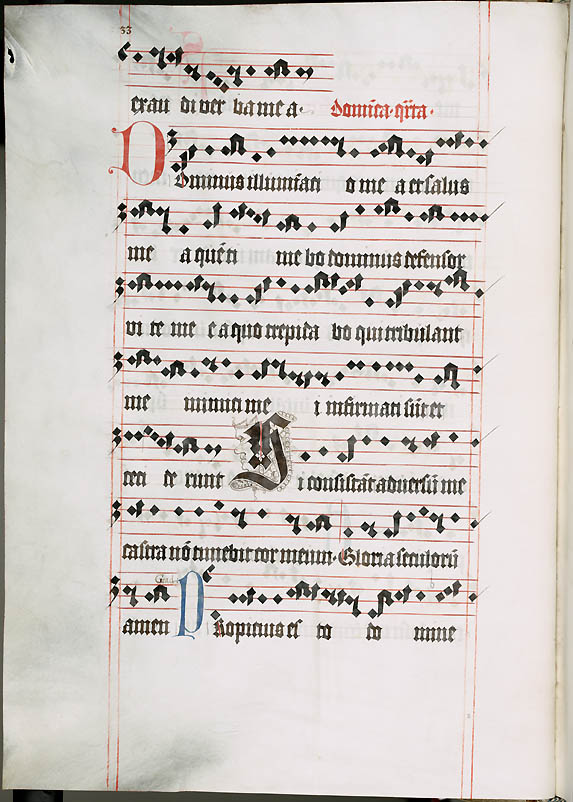 33
exau di ver ba me a. Domīca. q̄rta.
Dominus illumīaci o me a et salus
me a quē ti me bo dominus defensor
vi te me e a quo trepida bo qui tribulant
me inimici me i infirmati sūt et
ceci de runt Si consistāt adversū me
castra nō timebit cor meum. Gloria seculorū
Grad.
amen Propicius es to do mine